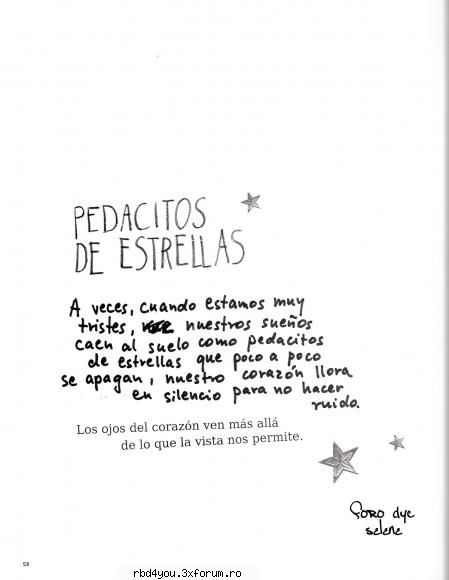 PEDACITOS
DE ESTRELLAS
A veces, cuando estamos muy
tristes, nuestros sueños
caen al suelo como pedacitos
de estrellas que poco a poco
se apagan, nuestro corazón llora
en silencio para no hacer
ruido.
Los ojos del corazón ven más allá
de lo que la vista nos permite.
FORO dye
selene
58
rbd4you.3xforum.ro